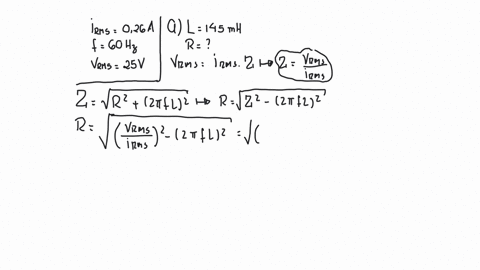 iRms = 0,26A
f = 60 Hz
VRms = 25V
a) L = 145 mH
R = ?
VRms = iRms . Z ↦ Z = VRms/iRms
Z = √(R² + (2πfL)²) ↦ R = √(Z² - (2πfL)²)
R = √((VRms/iRms)² - (2πfL)²) = √(